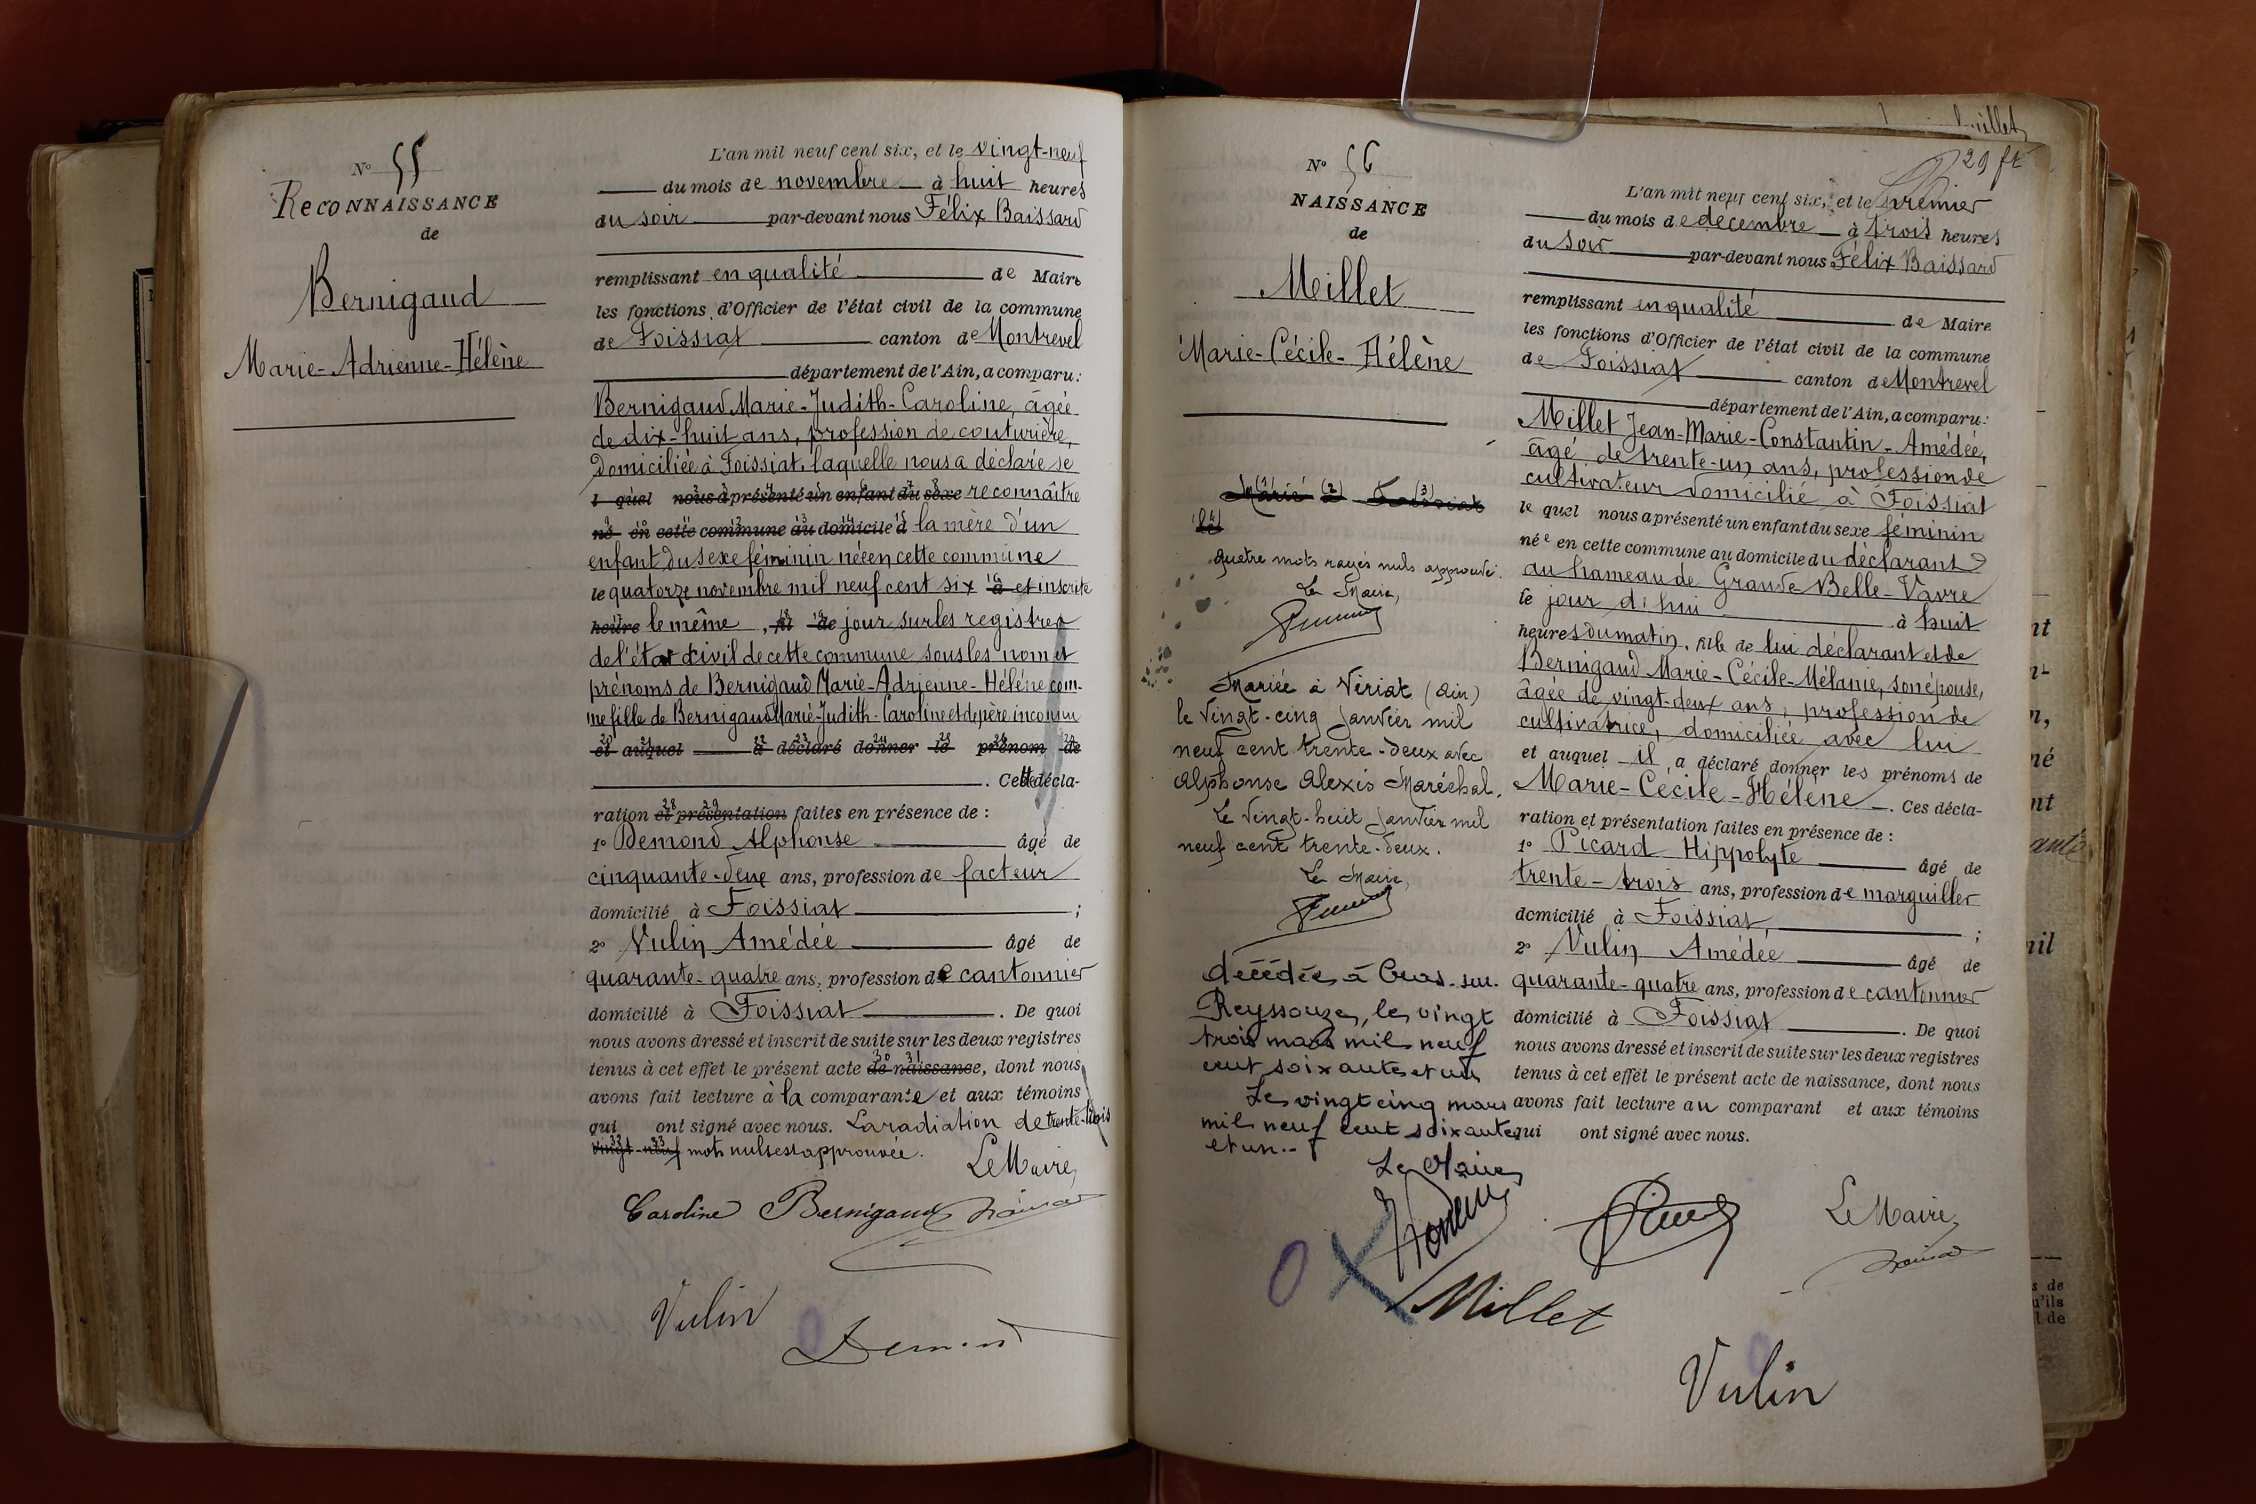 N° 55
ReCONNAISSANCE
de
Bernigaud
Marie-Adrienne-Hélène
L'an mil neuf cent six, et le vingt-neuf
du mois de novembre à huit heures
du soir par-devant nous Félix Baissard
remplissant en qualité de Maire
les fonctions d'Officier de l'état civil de la commune
de Foissiat canton de Montrevel
département de l'Ain, a comparu:
Bernigaud Marie-Judith-Caroline, âgée
de dix-huit ans, profession de couturière,
domiciliée à Foissiat, laquelle nous a déclaré se
l quel nous a présenté un enfant du sexe reconnaître
né en cette commune au domicile d la mère d'un
enfant du sexe féminin née en cette commune
le quatorze novembre mil neuf cent six à et inscrite
heure le même, fil de jour sur les registres
de l'état civil de cette commune sous les nom et
prénoms de Bernigaud Marie-Adrienne-Hélène com-
me fille de Bernigaud Marie-Judith-Caroline et de père inconnu
et auquel a déclaré donner le prénom de
. Cette décla-
ration et présentation faites en présence de :
1° Demond Alphonse âgé de
cinquante-deux ans, profession de facteur
domicilié à Foissiat ;
2° Vulin Amédée âgé de
quarante-quatre ans, profession de cantonnier
domicilié à Foissiat . De quoi
nous avons dressé et inscrit de suite sur les deux registres
tenus à cet effet le présent acte de naissance, dont nous
avons fait lecture à la comparante et aux témoins
qui ont signé avec nous. La radiation de trente-trois
vingt-neuf mots nuls est approuvée.
Le Maire,
Caroline Bernigaud
Vulin
Demond
29 ft
N° 56
NAISSANCE
de
Millet
Marie-Cécile-Hélène
quatre mots rayés nuls approuvé.
Le Maire,
Mariée à Viriat (Ain)
le vingt-cinq janvier mil
neuf cent trente-deux avec
Alphonse Alexis Maréchal.
Le vingt-huit janvier mil
neuf cent trente-deux.
Le Maire,
décédée à Cras-sur-
Reyssouze, le vingt
trois mars mil neuf
cent soixante et un
Le vingt cinq mars
mil neuf cent soixante
et un.-
Le Maire
L'an mil neuf cent six, et le premier
du mois de décembre à trois heures
du soir par-devant nous Félix Baissard
remplissant en qualité de Maire
les fonctions d'Officier de l'état civil de la commune
de Foissiat canton de Montrevel
département de l'Ain, a comparu:
Millet Jean-Marie-Constantin-Amédée,
âgé de trente-un ans, profession de
cultivateur domicilié à Foissiat
le quel nous a présenté un enfant du sexe féminin
née en cette commune au domicile du déclarant
au hameau de Grande Belle-Vavre
le jour d'hui à huit
heures du matin, fille de lui déclarant et de
Bernigaud Marie-Cécile-Mélanie, son épouse,
âgée de vingt-deux ans, profession de
cultivatrice, domiciliée avec lui
et auquel il a déclaré donner les prénoms de
Marie-Cécile-Hélène . Ces décla-
ration et présentation faites en présence de :
1° Picard Hippolyte âgé de
trente-trois ans, profession de marguiller
domicilié à Foissiat, ;
2° Vulin Amédée âgé de
quarante-quatre ans, profession de cantonnier
domicilié à Foissiat . De quoi
nous avons dressé et inscrit de suite sur les deux registres
tenus à cet effet le présent acte de naissance, dont nous
avons fait lecture au comparant et aux témoins
qui ont signé avec nous.
Le Maire,
Millet
Vulin